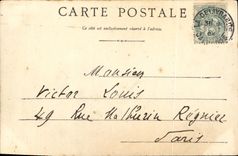 CARTE POSTALE
Ce côté est exclusivement réservé à l'adresse
Monsieur
Victor Louis
49 Rue Mathurin Régnier
Paris